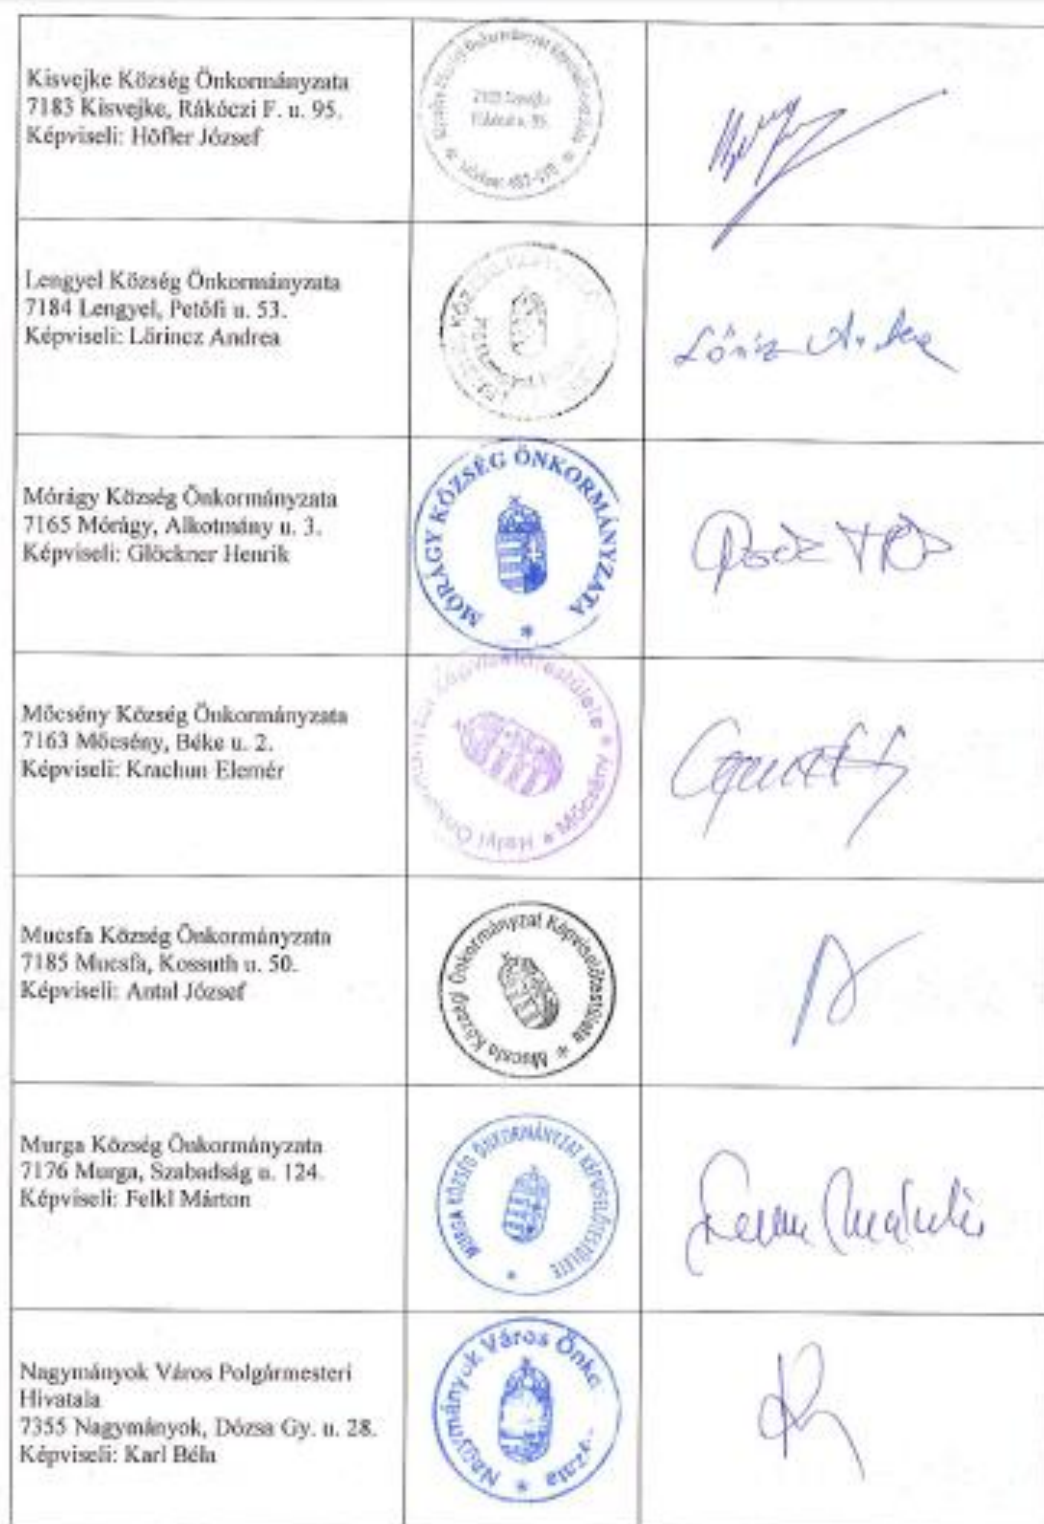 Kisvejke Község Önkormányzata
7183 Kisvejke, Rákóczi F. u. 95.
Képviseli: Höfler József
Lengyel Község Önkormányzata
7184 Lengyel, Petőfi u. 53.
Képviseli: Lőrincz Andrea
KÖZSÉG
Mórágy Község Önkormányzata
7165 Mórágy, Alkotmány u. 3.
Képviseli: Glöckner Henrik
MÓRÁGY KÖZSÉG ÖNKORMÁNYZATA
Mőcsény Község Önkormányzata
7163 Mőcsény, Béke u. 2.
Képviseli: Krachun Elemér
Helyi Önkormányzat Képviselőtestülete * Mőcsény *
Mucsfa Község Önkormányzata
7185 Mucsfa, Kossuth u. 50.
Képviseli: Antal József
Mucsfa Községi Önkormányzat Képviselőtestülete *
Murga Község Önkormányzata
7176 Murga, Szabadság u. 124.
Képviseli: Felkl Márton
MURGA KÖZSÉG ÖNKORMÁNYZAT KÉPVISELŐTESTÜLETE *
Nagymányok Város Polgármesteri
Hivatala
7355 Nagymányok, Dózsa Gy. u. 28.
Képviseli: Karl Béla
Nagymányok Város Önko
yzata *